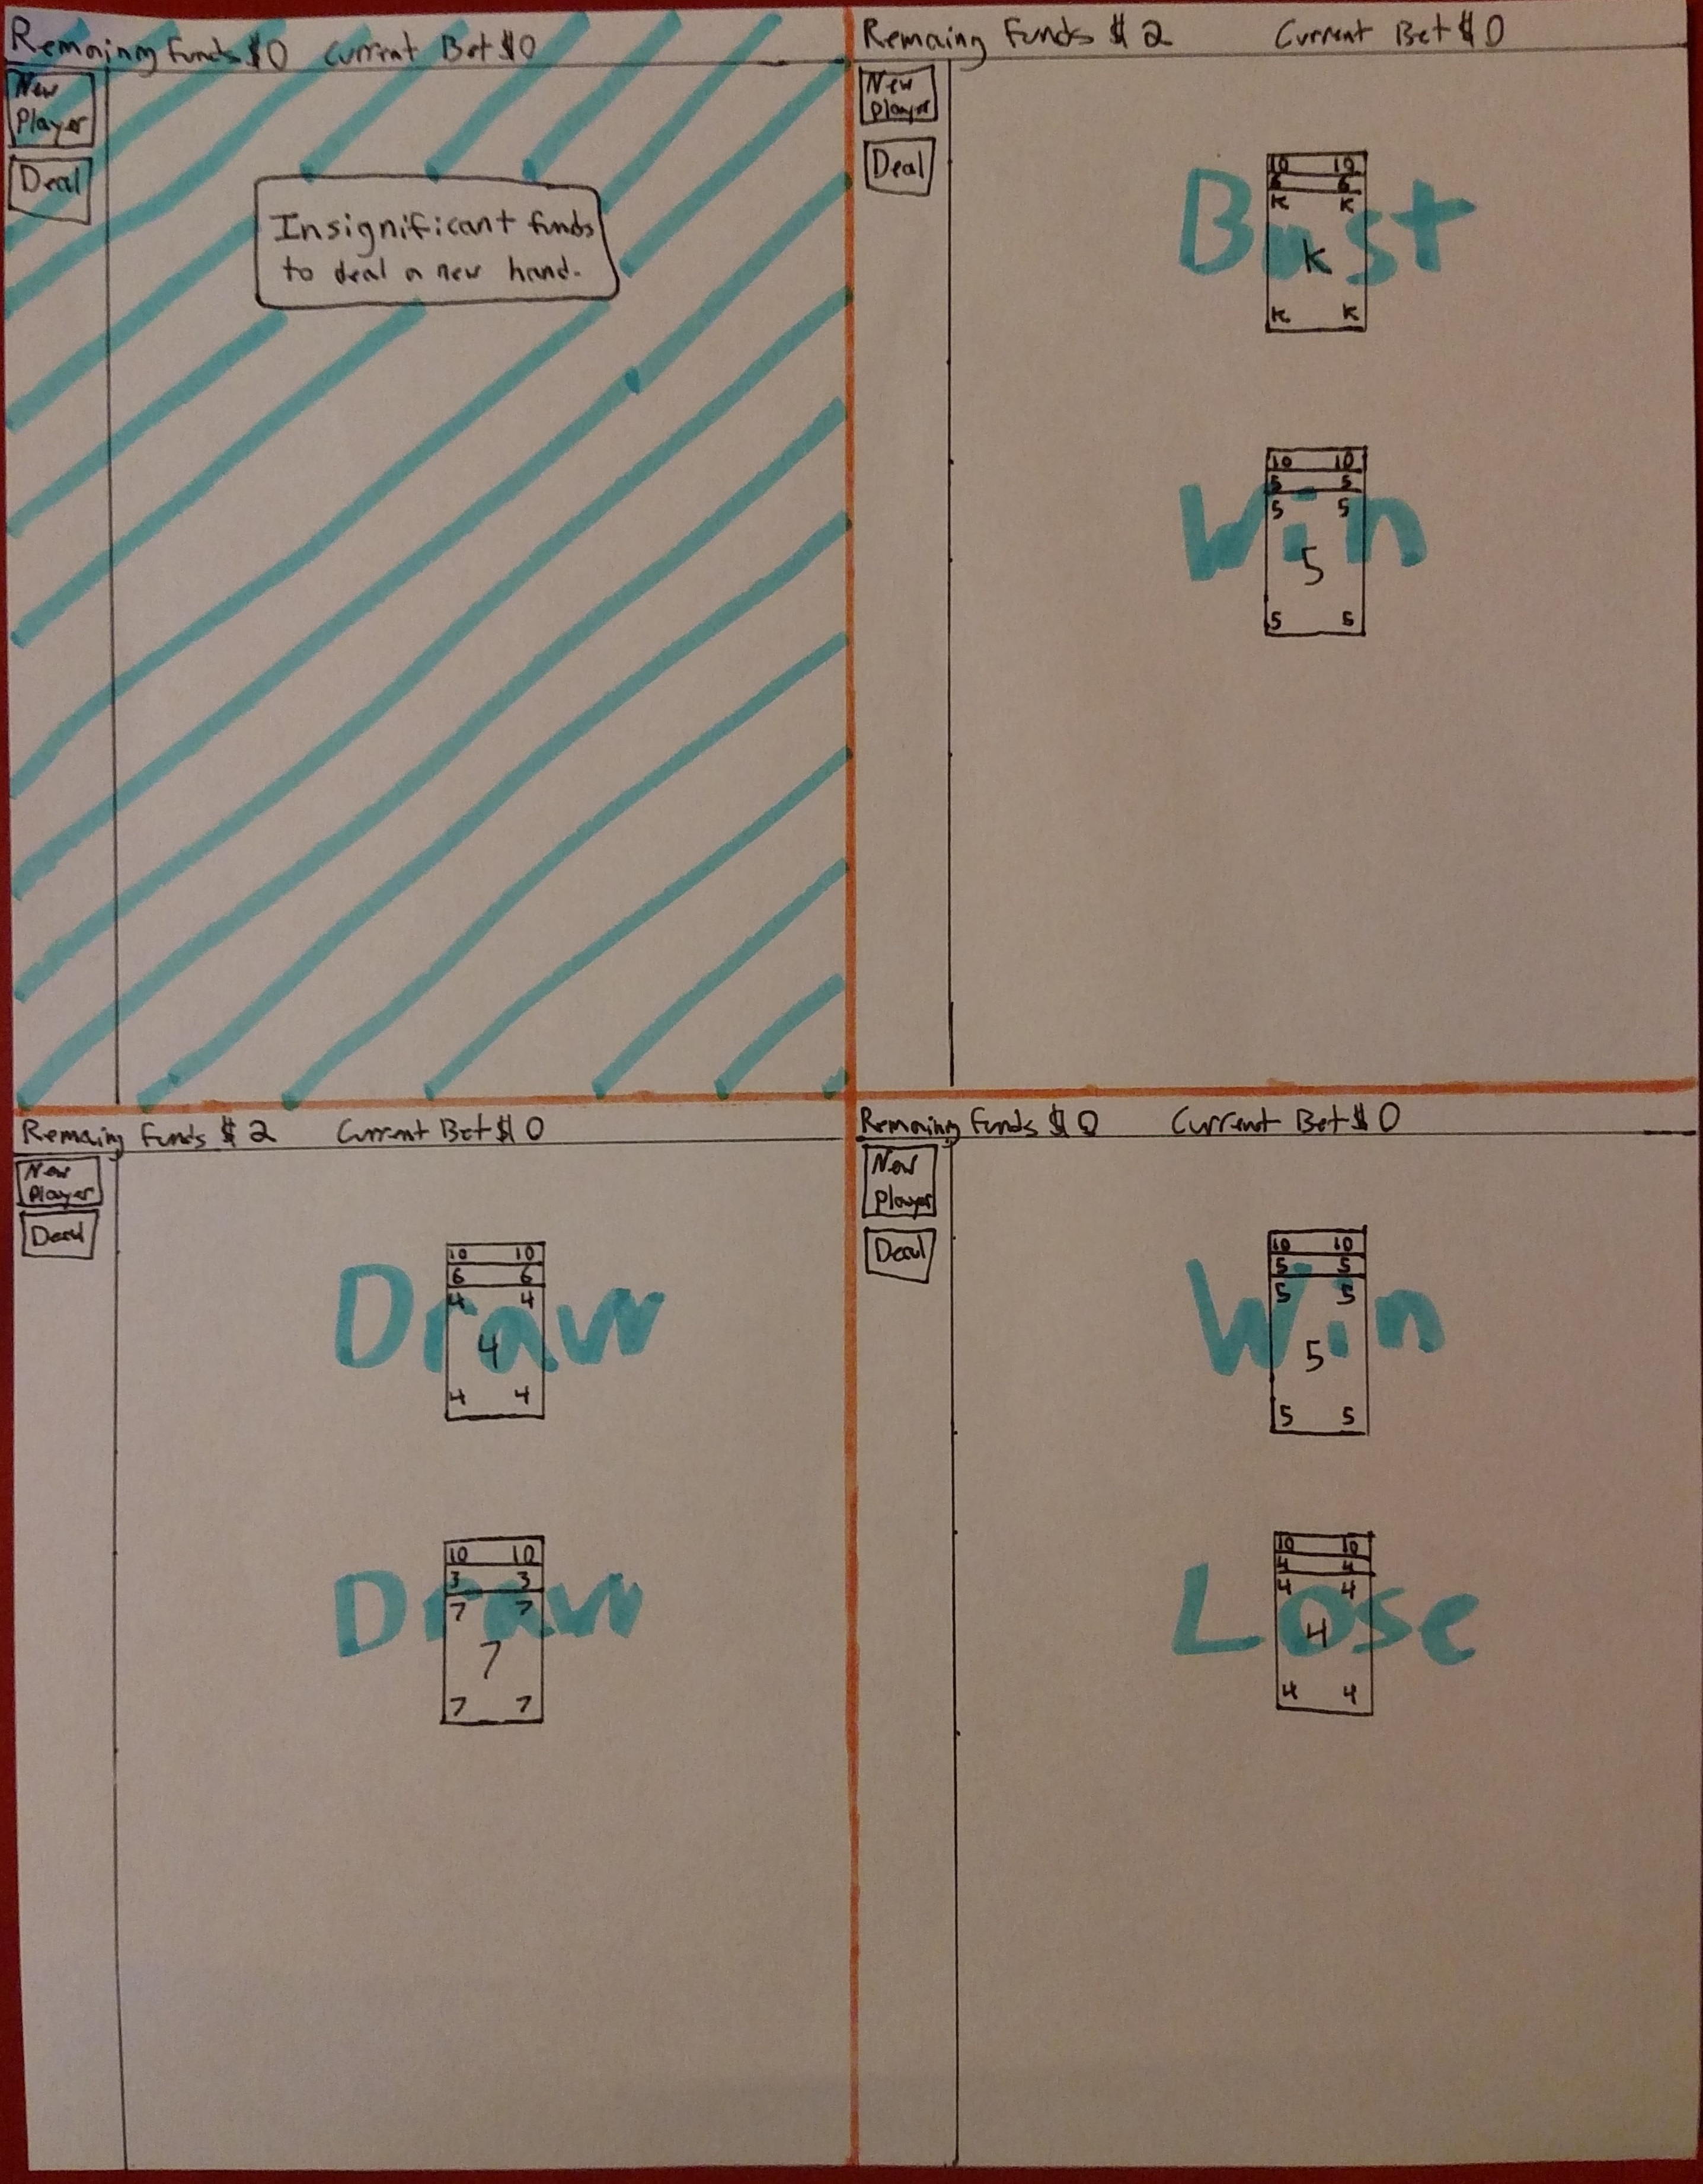 Remaining Funds $0 Current Bet $0
New
Player
Deal
Insignificant funds
to deal a new hand.
Remaing Funds $2 Current Bet $0
New
Player
Deal
Bust
10 10
6 6
K K
K
K K
Win
10 10
5 5
5 5
5
5 5
Remaing Funds $2 Current Bet $0
New
Player
Deal
Draw
10 10
6 6
4 4
4
4 4
Draw
10 10
3 3
7 7
7
7 7
Remaing Funds $0 Current Bet $0
New
Player
Deal
Win
10 10
5 5
5 5
5
5 5
Lose
10 10
4 4
4 4
4
4 4